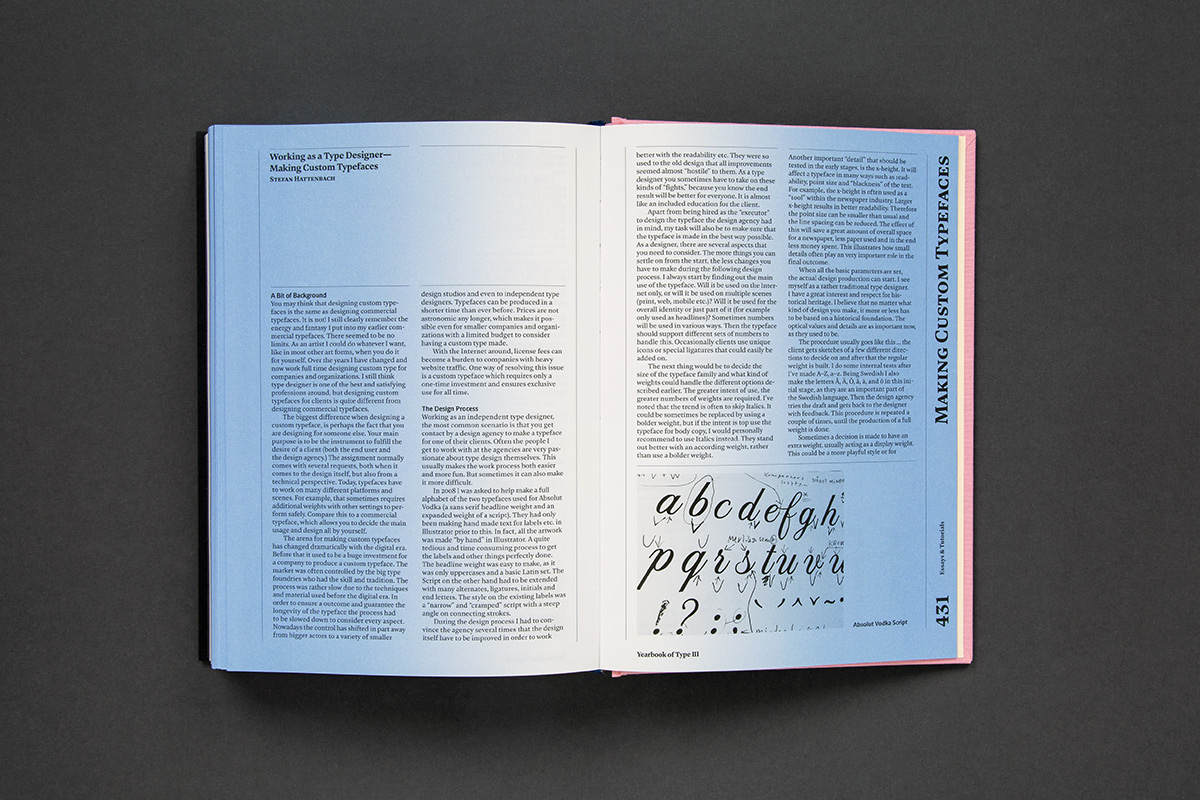 Working as a Type Designer—
Making Custom Typefaces
Stefan Hattenbach
A Bit of Background
You may think that designing custom type-
faces is the same as designing commercial
typefaces. It is not! I still clearly remember the
energy and fantasy I put into my earlier com-
mercial typefaces. There seemed to be no
limits. As an artist I could do whatever I want,
like in most other art forms, when you do it
for yourself. Over the years I have changed and
now work full time designing custom type for
companies and organizations. I still think
type designer is one of the best and satisfying
professions around, but designing custom
typefaces for clients is quite different from
designing commercial typefaces.
The biggest difference when designing a
custom typeface, is perhaps the fact that you
are designing for someone else. Your main
purpose is to be the instrument to fulfill the
desire of a client (both the end user and
the design agency.) The assignment normally
comes with several requests, both when it
comes to the design itself, but also from a
technical perspective. Today, typefaces have
to work on many different platforms and
scenes. For example, that sometimes requires
additional weights with other settings to per-
form safely. Compare this to a commercial
typeface, which allows you to decide the main
usage and design all by yourself.
The arena for making custom typefaces
has changed dramatically with the digital era.
Before that it used to be a huge investment for
a company to produce a custom typeface. The
market was often controlled by the big type
foundries who had the skill and tradition. The
process was rather slow due to the techniques
and material used before the digital era. In
order to ensure a outcome and guarantee the
longevity of the typeface the process had
to be slowed down to consider every aspect.
Nowadays the control has shifted in part away
from bigger actors to a variety of smaller
design studios and even to independent type
designers. Typefaces can be produced in a
shorter time than ever before. Prices are not
astronomic any longer, which makes it pos-
sible even for smaller companies and organi-
zations with a limited budget to consider
having a custom type made.
With the Internet around, license fees can
become a burden to companies with heavy
website traffic. One way of resolving this issue
is a custom typeface which requires only a
one-time investment and ensures exclusive
use for all time.
The Design Process
Working as an independent type designer,
the most common scenario is that you get
contact by a design agency to make a typeface
for one of their clients. Often the people I
get to work with at the agencies are very pas-
sionate about type design themselves. This
usually makes the work process both easier
and more fun. But sometimes it can also make
it more difficult.
In 2008 I was asked to help make a full
alphabet of the two typefaces used for Absolut
Vodka (a sans serif headline weight and an
expanded weight of a script). They had only
been making hand made text for labels etc. in
Illustrator prior to this. In fact, all the artwork
was made "by hand" in Illustrator. A quite
tedious and time consuming process to get
the labels and other things perfectly done.
The headline weight was easy to make, as it
was only uppercases and a basic Latin set. The
Script on the other hand had to be extended
with many alternates, ligatures, initials and
end letters. The style on the existing labels was
a "narrow" and "cramped" script with a steep
angle on connecting strokes.
During the design process I had to con-
vince the agency several times that the design
itself have to be improved in order to work
better with the readability etc. They were so
used to the old design that all improvements
seemed almost "hostile" to them. As a type
designer you sometimes have to take on these
kinds of "fights," because you know the end
result will be better for everyone. It is almost
like an included education for the client.
Apart from being hired as the "executor"
to design the typeface the design agency had
in mind, my task will also be to make sure that
the typeface is made in the best way possible.
As a designer, there are several aspects that
you need to consider. The more things you can
settle on from the start, the less changes you
have to make during the following design
process. I always start by finding out the main
use of the typeface. Will it be used on the Inter-
net only, or will it be used on multiple scenes
(print, web, mobile etc.)? Will it be used for the
overall identity or just part of it (for example
only used as headlines)? Sometimes numbers
will be used in various ways. Then the typeface
should support different sets of numbers to
handle this. Occasionally clients use unique
icons or special ligatures that could easily be
added on.
The next thing would be to decide the
size of the typeface family and what kind of
weights could handle the different options de-
scribed earlier. The greater intent of use, the
greater numbers of weights are required. I've
noted that the trend is often to skip Italics. It
could be sometimes be replaced by using a
bolder weight, but if the intent is top use the
typeface for body copy, I would personally
recommend to use Italics instead. They stand
out better with an according weight, rather
than use a bolder weight.
Another important "detail" that should be
tested in the early stages, is the x-height. It will
affect a typeface in many ways such as read-
ability, point size and "blackness" of the text.
For example, the x-height is often used as a
"tool" within the newspaper industry. Larger
x-height results in better readability. Therefore
the point size can be smaller than usual and
the line spacing can be reduced. The effect of
this will save a great amount of overall space
for a newspaper, less paper used and in the end
less money spent. This illustrates how small
details often play an very important role in the
final outcome.
When all the basic parameters are set,
the actual design production can start. I see
myself as a rather traditional type designer.
I have a great interest and respect for his-
torical heritage. I believe that no matter what
kind of design you make, it more or less has
to be based on a historical foundation. The
optical values and details are as important now,
as they used to be.
The procedure usually goes like this ... the
client gets sketches of a few different direc-
tions to decide on and after that the regular
weight is built. I do some internal tests after
I've made A–Z, a–z. Being Swedish I also
make the letters Å, Ä, Ö, å, ä, and ö in this ini-
tial stage, as they are an important part of
the Swedish language. Then the design agency
tries the draft and gets back to the designer
with feedback. This procedure is repeated a
couple of times, until the production of a full
weight is done.
Sometimes a decision is made to have an
extra weight, usually acting as a display weight.
This could be a more playful style or for
a b c d e f g h
p q r s t u v
! ?
Absolut Vodka Script
Yearbook of Type III
Making Custom Typefaces
Essays & Tutorials
431